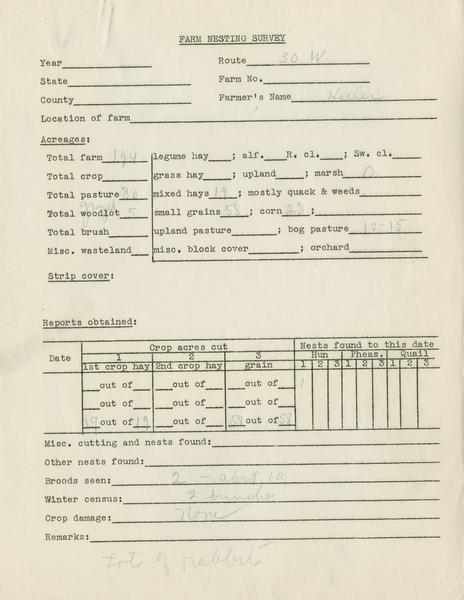 FARM NESTING SURVEY
Year Route 30 W.
State Farm No.
County Farmer's Name
Location of farm
Acreages:
Total farm 194 legume hay ; alf. R. cl. ; Sw. cl.
Total crop grass hay ; upland ; marsh 0
Total pasture 80 mixed hays 19 ; mostly quack & weeds
grazed
Total woodlot 5 small grains 58 ; corn 28 ;
Total brush upland pasture ; bog pasture 12-15
Misc. wasteland misc. block cover ; orchard
Strip cover:
Reports obtained:
Crop acres cut Nests found to this date
Date 1 2 3 Hun Pheas. Quail
1st crop hay 2nd crop hay grain 1 2 3 1 2 3 1 2 3
out of out of out of 1
out of out of out of
19 out of 19 out of 58 out of 58
Misc. cutting and nests found:
Other nests found:
Broods seen: 2 - about 10
Winter census: 2 bunches
Crop damage: None
Remarks:
Lots of rabbits